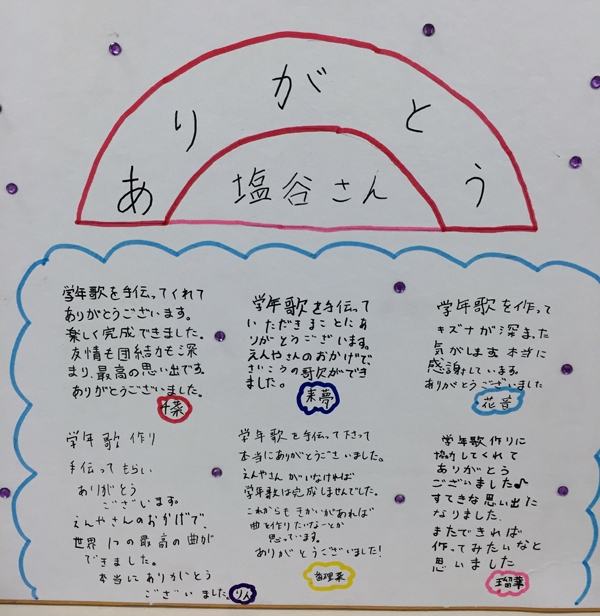 ありがとう
塩谷さん
学年歌を手伝ってくれて
ありがとうございます。
楽しく完成できました。
友情も団結力も深
まり、最高の思い出です。
ありがとうございました。
千菜
学年歌を手伝って
いただきまことにあ
りがとうございます。
えんやさんのおかげで
さいこうの歌ができ
ました。
来夢
学年歌を作って
キズナが深まった
気がします 本当に
感謝しています。
ありがとうございました
花音
学年歌作り
手伝ってもらい
ありがとう
ございます。
えんやさんのおかげで、
世界1つの最高の曲が
できました。
本当にありがとう
ございました。
りん
学年歌を手伝って下さって
本当にありがとうございました。
えんやさんがいなければ
学年歌は完成しませんでした。
これからもきかいがあれば
曲を作りたいなーとか
思っています。
ありがとうございました!
学年歌作りに
協力してくれて
ありがとう
ございました♪
すてきな思い出に
なりました。
またできれば
作ってみたいなと
思いました
瑠華